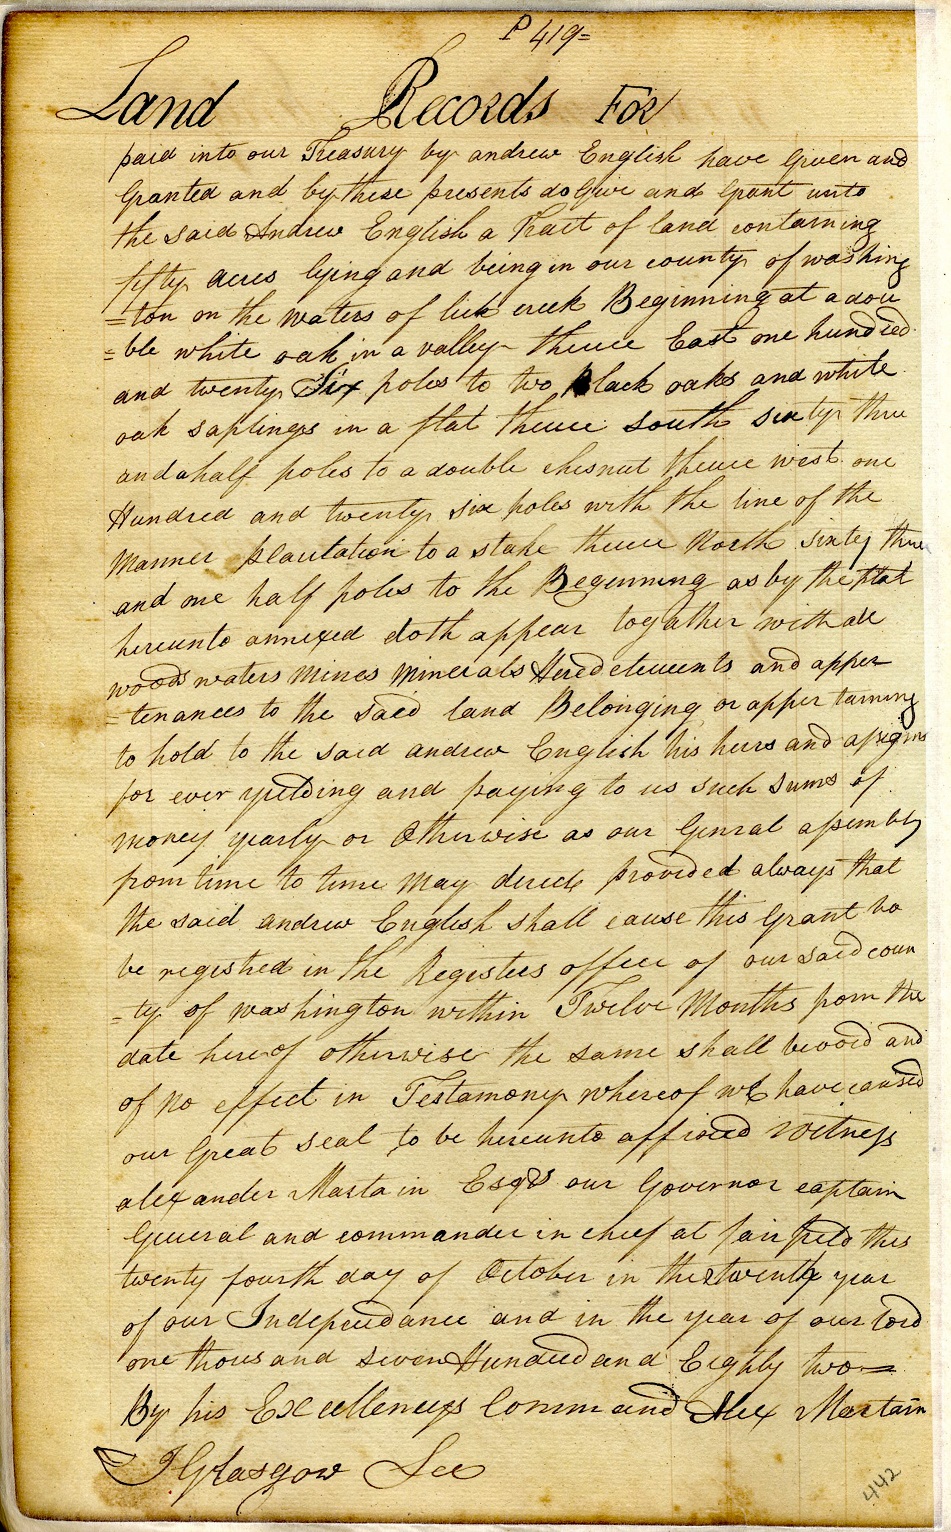 P 419=
Land Records For
paid into our Treasury by andrew English have Given and
Granted and by these presents do Give and Grant unto
the said Andrew English a Tract of land containing
fifty acres lying and being in our county of washing
=ton on the waters of lick creek Beginning at a dou
=ble white oak in a valley thence East one hundred
and twenty Six poles to two black oaks and white
oak saplings in a flat thence south sixty three
and a half poles to a double chesnut thence west one
Hundred and twenty six poles with the line of the
Manner plantation to a stake thence North sixty three
and one half poles to the Beginning as by the plat
hereunto annexed doth appear togather with all
woods waters mines minerals Hereditements and apper
=tenances to the said land Belonging or apper taining
to hold to the said andrew English his heirs and assigns
for ever yielding and paying to us such sums of
money yearly or Otherwise as our Genral assembly
from time to time May direct provided always that
the said andrew English shall cause this Grant to
be registred in the Registers office of our said coun
=ty of washington within Twelve Months from the
date hereof otherwise the same shall be void and
of no effect in Testamony whereof we have caused
our Great seal to be hereunto affixed witness
alexander Martain Esqr our Governor captain
General and commander in chief at fairfield this
twenty fourth day of October in the year
of our Independance and in the year of our lord
one thousand seven Hundred and Eighty two=
By his Excellencys Command Alex Martain
J Glasgow Sec
442